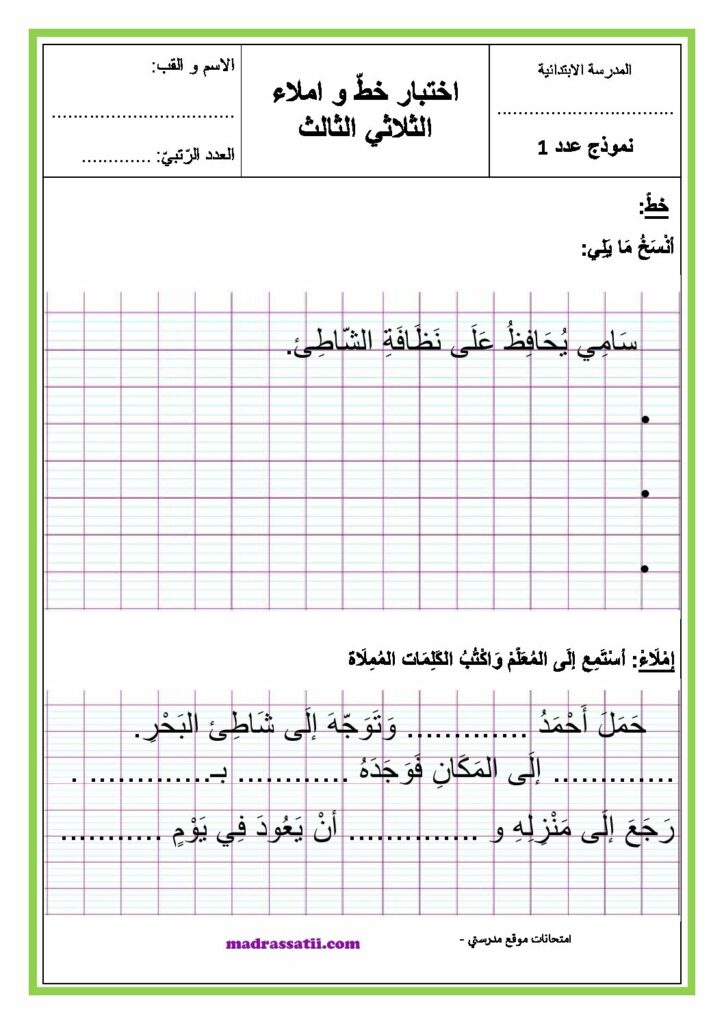 المدرسة الابتدائية
................................
نموذج عدد 1
اختبار خطّ و املاء
الثلاثي الثالث
الاسم و القب:
.................................
العدد الرّتبيّ: .............
خطّ:
أنْسَخُ مَا يَلِي:
سَامِي يُحَافِظُ عَلَى نَظَافَةِ الشّاطِئ.
•
•
•
إمْلَاءْ: أسْتَمِع إلَى المُعَلّمْ وَاكْتُبُ الكَلِمَات المُمِلَاة
حَمَلَ أَحْمَدُ ............ وَتَوَجّهَ إلَى شَاطِئ البَحْرِ.
............ إلَى المَكَانِ فَوَجَدَهُ ........... بـ............ .
رَجَعَ إلَى مَنْزِلِهِ و ............. أنْ يَعُودَ فِي يَوْمٍ ...........
امتحانات موقع مدرستي - madrassatii.com